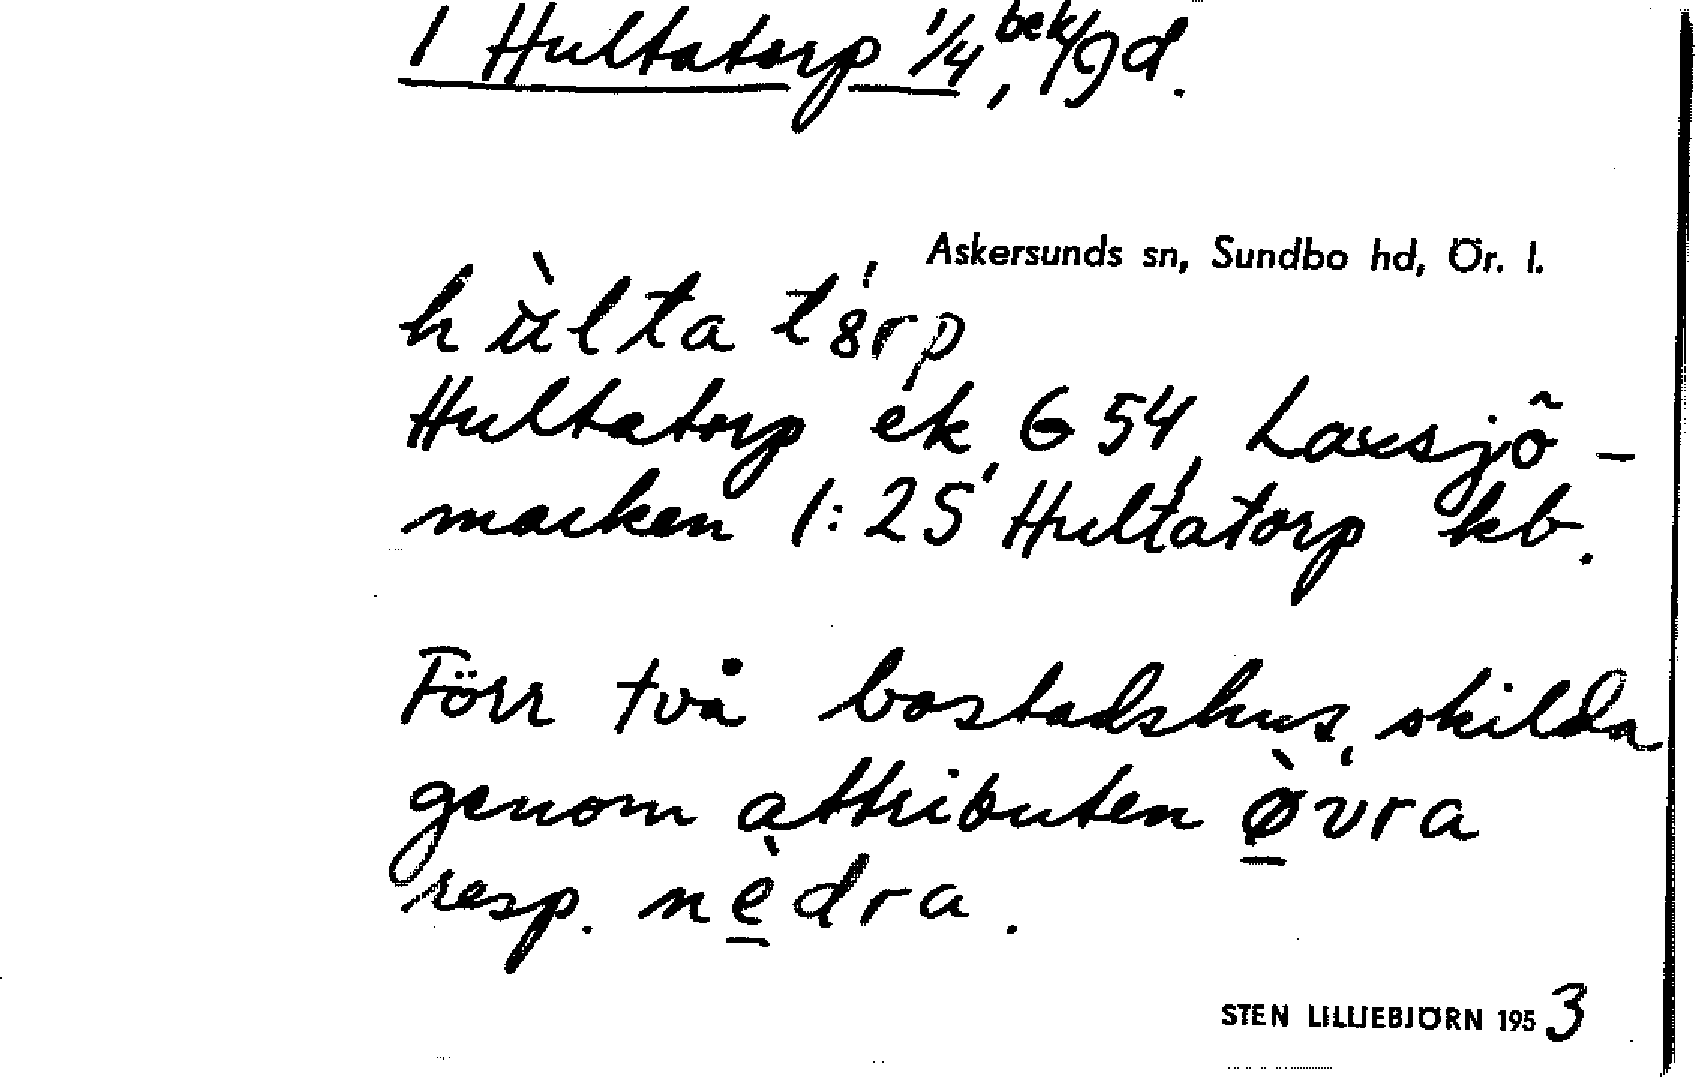 1 Hultatorp 1/4, bek/gd.
Askersunds sn, Sundbo hd, Ör. l.
hùlta tórp
Hultatorp ek G 54, Laxsjö-
marken 1:25, Hultatorp kb.
Förr två bostadshus, skilda
genom attributen ø̀vra
resp. nèdra.
STEN LILLIEBJÖRN 1953